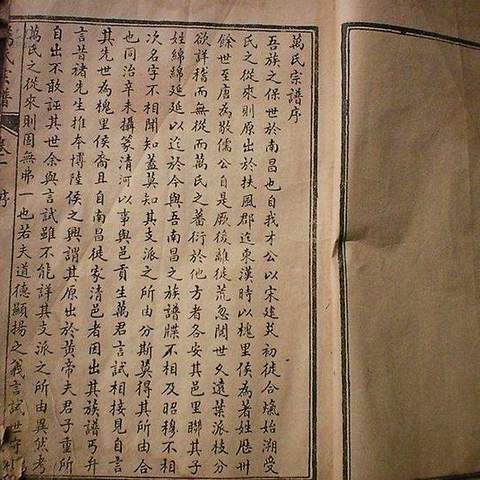 萬氏宗譜序
吾族之保世於南昌也自我才公以宋建炎初徙合熵始溯受
氏之從來則原出於扶風郡迄東漢時以槐里侯為著姓歷卅
餘世至唐為敬儒公自是厥後離徙荒忽閱世久遠葉派枝分
欲詳稽而無從而萬氏之蕃衍於他方者各安其邑里聯其子
姓綿綿延延以迄於今與吾南昌之族譜牒不相及昭穆不相
次名字不相聞知蓋莫知其支派之所由分斯莫得其所由合
也同治辛未攝篆清河以事與邑貢生萬君言試相接見自言
其先世為槐里侯裔且自南昌徙家清邑者因出其族譜丐弁
言昔諸先生推本博陸侯之興謂其原出於黃帝夫君子重所
自出不敢誣其世余與言試雖不能詳其支派之所由異然考
萬氏之從來則固無弗一也若夫道德顯揚之義言試世守
氏宗譜
卷一
序